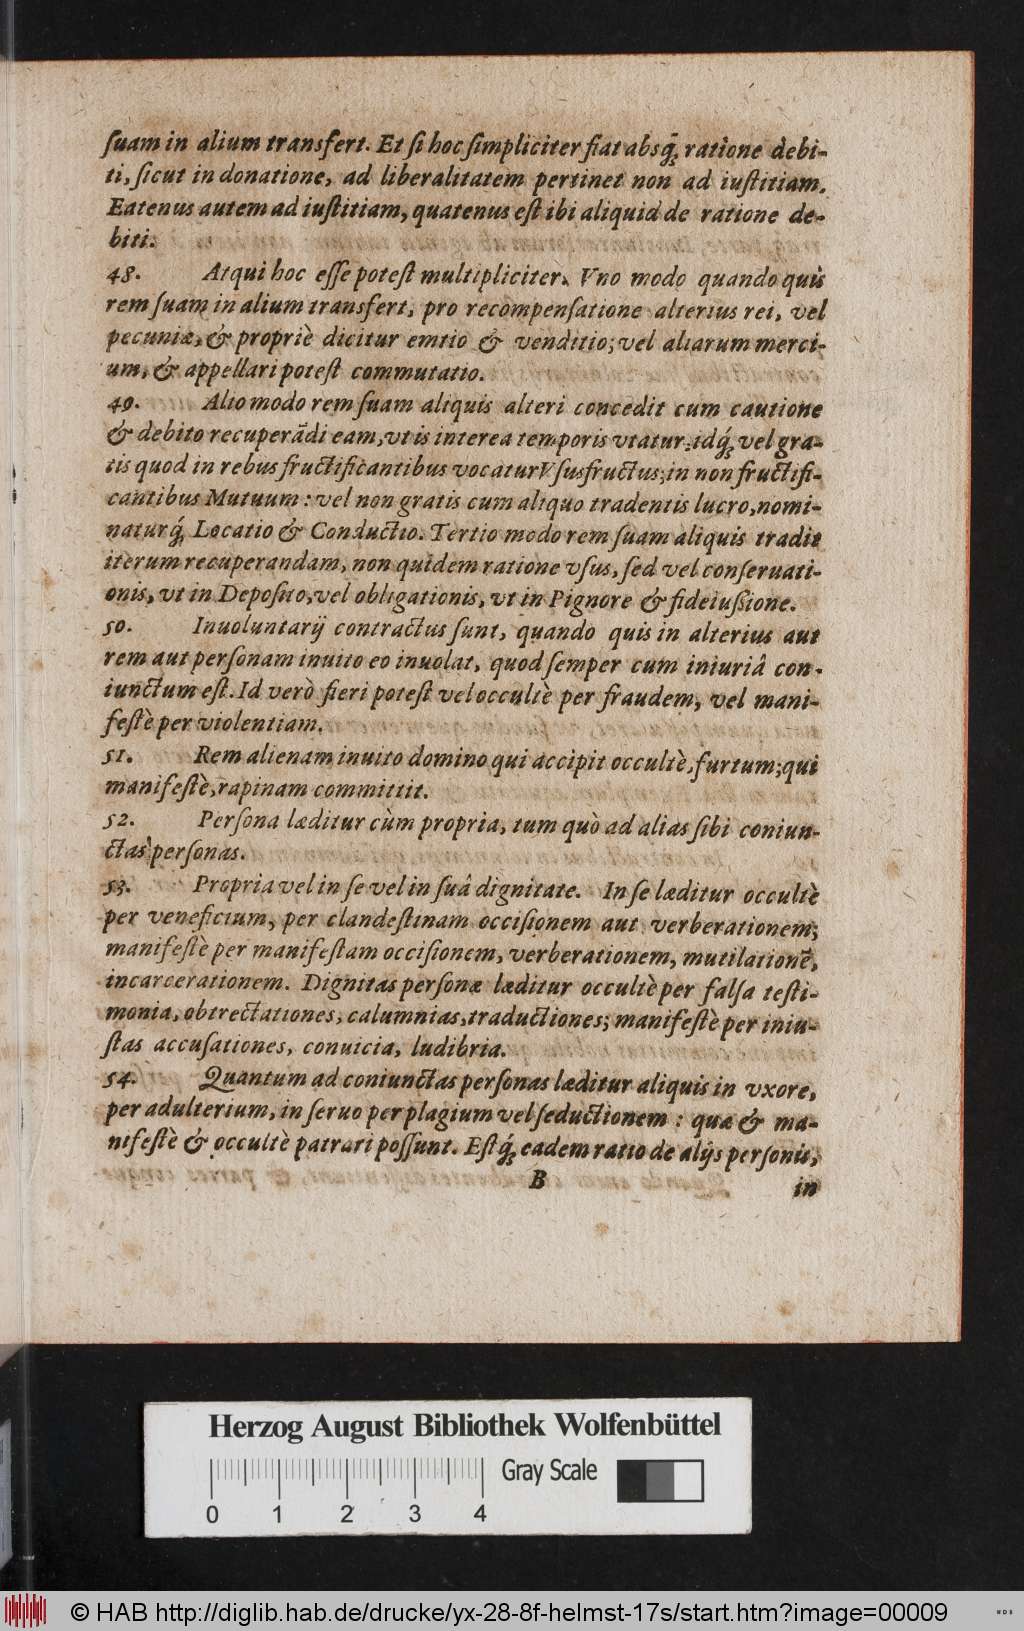 ſuam in alium transfert. Et ſi hoc ſimpliciter fiat absq̃; ratione debi-
ti, ſicut in donatione, ad liberalitatem pertinet non ad iuſtitiam.
Eatenus autem ad iuſtitiam, quatenus eſt ibi aliquid de ratione de-
biti.
48. Atqui hoc eſſe poteſt multipliciter. Vno modo quando quis
rem ſuam in alium transfert, pro recompenſatione alterius rei, vel
pecuniæ, & propriè dicitur emtio & venditio; vel aliarum merci-
um, & appellari poteſt commutatio.
49. Alio modo rem ſuam aliquis alteri concedit cum cautione
& debito recuperãdi eam, vt is interea temporis vtatur: idq́; vel gra-
tis quod in rebus fructificantibus vocatur Vſusfructus; in non fructifi-
cantibus Mutuum: vel non gratis cum aliquo tradentis lucro, nomi-
naturq́; Locatio & Conductio. Tertio modo rem ſuam aliquis tradit
iterum recuperandam, non quidem ratione vſus, ſed vel conſeruati-
onis, vt in Depoſito, vel obligationis, vt in Pignore & fideiuſsione.
50. Inuoluntarij contractus ſunt, quando quis in alterius aut
rem aut perſonam inuito eo inuolat, quod ſemper cum iniuriâ con-
iunctum eſt. Id verò fieri poteſt vel occultè per fraudem, vel mani-
feſtè per violentiam.
51. Rem alienam inuito domino qui accipit occultè, furtum; qui
manifeſtè, rapinam committit.
52. Perſona læditur cùm propria, tum quò ad alias ſibi coniun-
ctas perſonas.
53. Propria vel in ſe vel in ſuâ dignitate. In ſe læditur occultè
per veneficium, per clandeſtinam occiſionem aut verberationem;
manifeſtè per manifeſtam occiſionem, verberationem, mutilationẽ,
incarcerationem. Dignitas perſonæ læditur occultè per falſa teſti-
monia, obtrectationes, calumnias, traductiones; manifeſtè per iniu-
ſtas accuſationes, conuicia, ludibria.
54. Quantum ad coniunctas perſonas læditur aliquis in vxore,
per adulterium, in ſeruo per plagium vel ſeductionem: quæ & ma-
nifeſtè & occultè patrari poſſunt. Eſtq́; eadem ratio de alijs perſonis,
B in
Herzog August Bibliothek Wolfenbüttel
Gray Scale
0 1 2 3 4
© HAB http://diglib.hab.de/drucke/yx-28-8f-helmst-17s/start.htm?image=00009